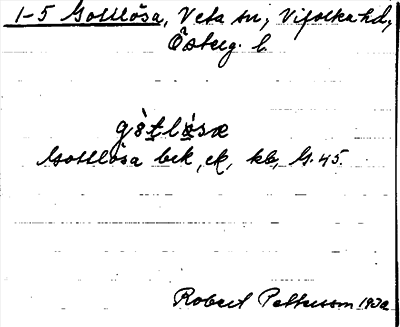 1-5 Gottlösa, Veta sn, Vifolka hd,
Österg. l.
gòtlø̀sæ
Gottlösa bck, ck, kb, G. 45.
Robert Pettersson 1902